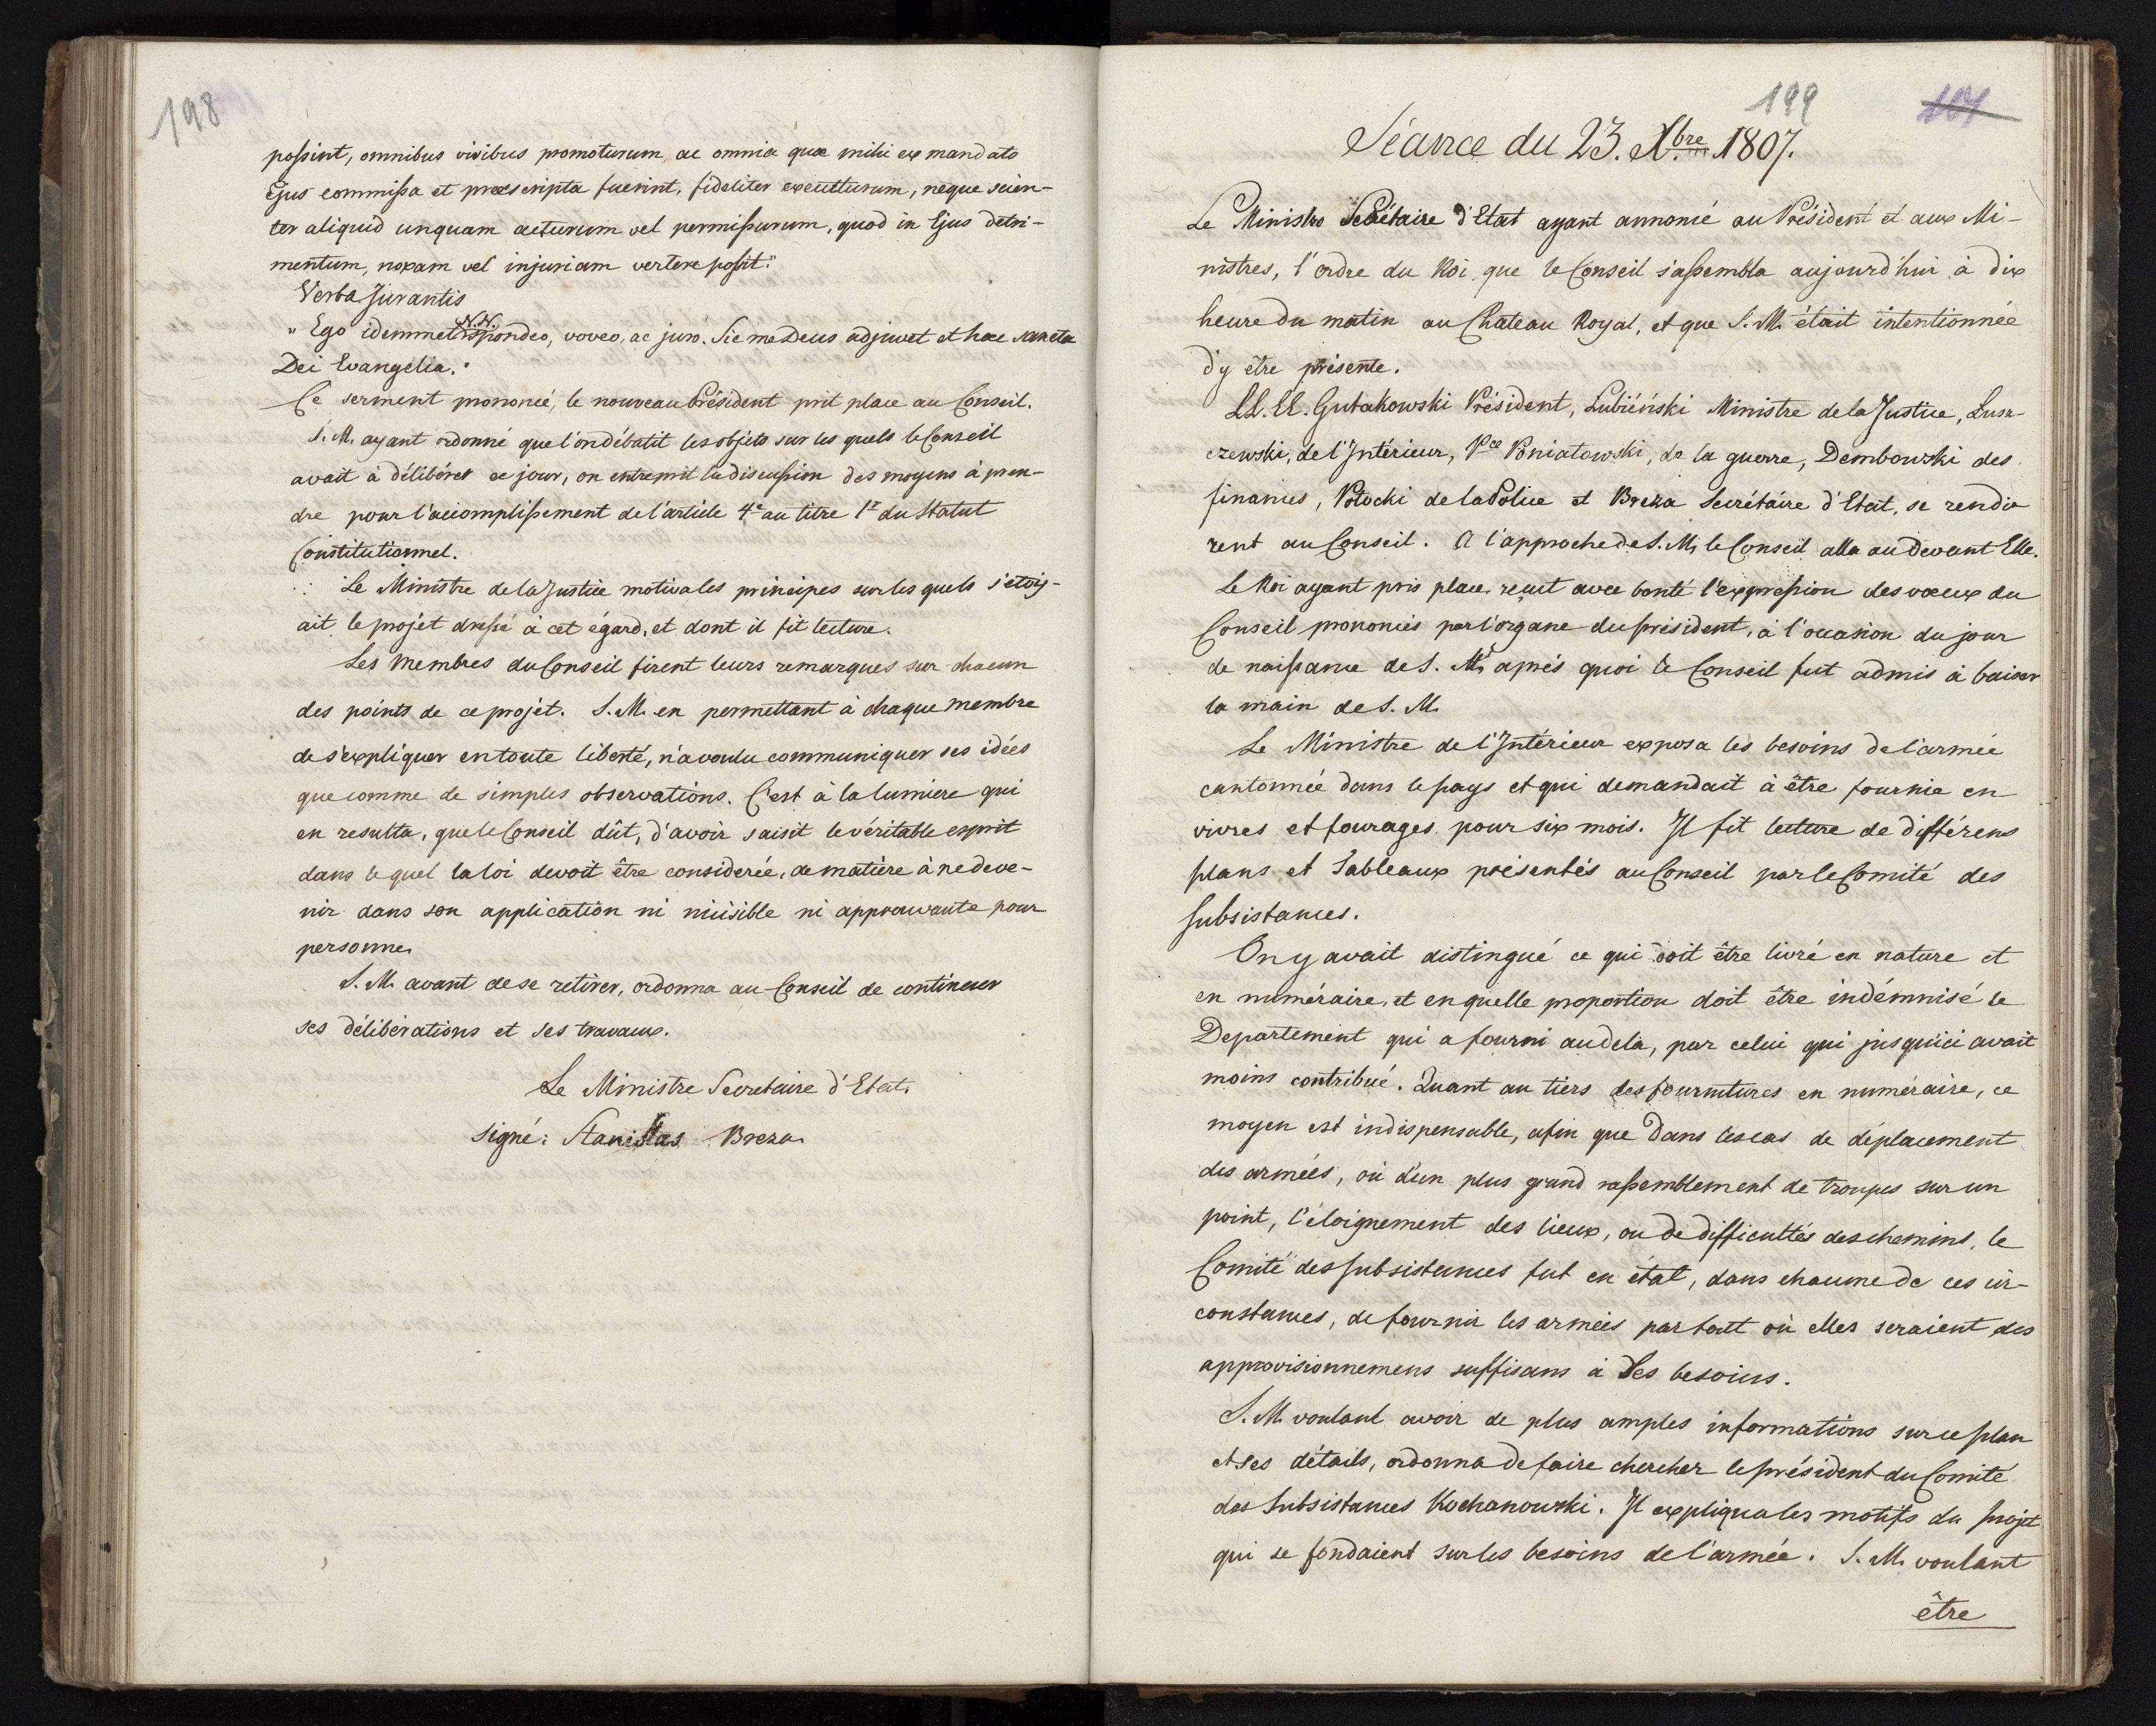 198
possint, omnibus viribus promoturum, ac omnia quæ mihi ex mandato
Ejus commissa et præscripta fuerint, fideliter executturum, neque scien-
ter aliquid unquam acturum vel permissurum, quod in Ejus detri-
mentum, noxam vel injuriam vertere possit."
Verba Jurantis
N.N.
" Ego idemmet spondeo, voveo, ac juro. Sic me Deus adjuvet et hæc sancta
Dei Evangelia."
Ce serment prononcé, le nouveau Président prit place au Conseil.
S. M. ayant ordonné que l'on débatit les objets sur les quels le Conseil
avait à délibérer ce jour, on entreprit la discussion des moyens à pren-
dre pour l'accomplissement de l'article 4e au titre 1r du Statut
Constitutionnel.
Le Ministre de la Justice motiva les principes sur les quels s'etoy-
ait le projet dressé à cet égard, et dont il fit lecture.
Les Membres du Conseil firent leurs remarques sur chacun
des points de ce projet. S. M. en permettant à chaque membre
de s'expliquer en toute liberté, n'a voulu communiquer ses idées
que comme de simples observations. C'est à la lumiere qui
en resulta, que le Conseil dût, d'avoir saisit le véritable esprit
dans le quel la loi devoit être considerée, de matière à ne deve-
nir dans son application ni nuisible ni
pour
personne.
S. M. avant de se retirer, ordonna au Conseil de continuer
ses délibérations et ses travaux.
Le Ministre Secretaire d'Etat.
Signé: Stanislas Breza.
199
101
Séance du 23. Xbre 1807.
Le Ministre Secrétaire d'Etat ayant annoncé au Président et aux Mi-
nistres, l'ordre du Roi, que le Conseil s'assembla aujourd'hui à dix
heure du matin au Chateau Royal, et que S. M. était intentionnée
d'y être présente.
LL. EE. Gutakowski Président, Lubiénski Ministre de la Justice, Lusz-
czewski, de l'Intérieur, Pce Poniatowski, de la guerre, Dembowski des
finances, Potocki de la Police et Breza Secrétaire d'Etat, se rendi-
rent au Conseil. A l'approche de S. M. le Conseil alla au devant Elle.
Le Roi ayant pris place, reçut avec bonté l'expression des vœux du
Conseil prononcés par l'organe du président, à l'occasion du jour
de naissance de S. M. après quoi le Conseil fut admis à baiser
la main de S. M.
Le Ministre de l'Intérieur exposa les besoins de l'armée
cantonnée dans le pays et qui demandait à être fournie en
vivres et fourages pour six mois. Il fit lecture de différens
plans et Tableaux présentés au Conseil par le Comité des
subsistances.
On y avait distingué ce qui doit être livré en nature et
en numéraire, et en quelle proportion doit être indémnisé le
Departement qui a fourni audela, par celui qui jusqu'ici avait
moins contribué. Quant au tiers des fournitures en numéraire, ce
moyen est indispensable, afin que dans les cas de déplacement
des armées, où d'un plus grand rassemblement de troupes sur un
point, l'éloignement des lieux, ou de difficultés des chemins, le
Comité des subsistances fut en état, dans chacune de ces cir-
constances, de fournir les armées partout où elles seraient des
approvisionnemens suffisans à Ses besoins.
S. M. voulant avoir de plus amples informations sur ce plan
et ses détails, ordonna de faire chercher le président du Comité
des Subsistances Kochanowski. Il expliqua les motifs du projet
qui se fondaient sur les besoins de l'armée. S. M. voulant
être